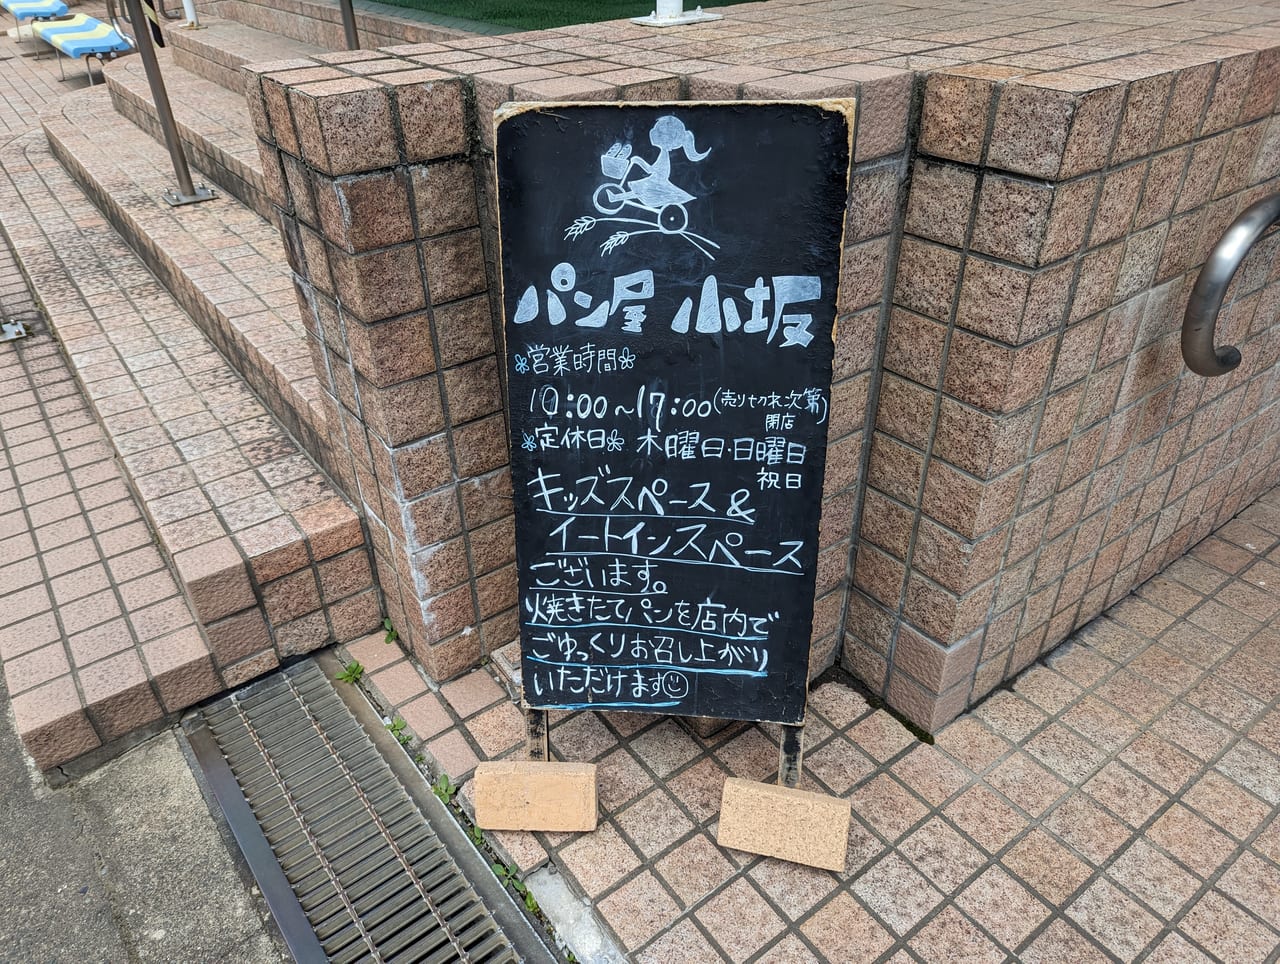 パン屋 小坂
営業時間
10:00~17:00(売り切れ次第)
閉店
定休日 木曜日・日曜日
祝日
キッズスペース &
イートインスペース
ございます。
焼きたてパンを店内で
ごゆっくりお召し上がり
いただけます